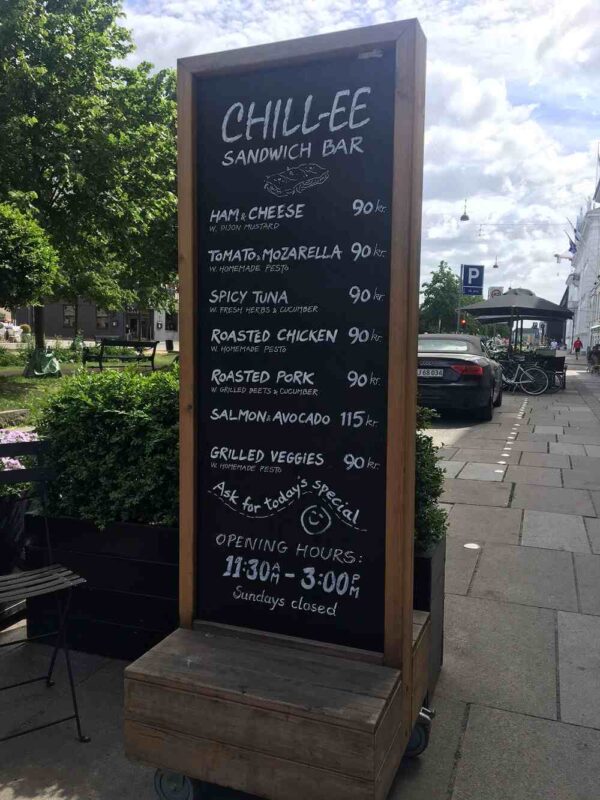 CHILL-EE
SANDWICH BAR
HAM & CHEESE 90 kr.
W. DIJON MUSTARD
TOMATO & MOZARELLA 90 kr.
W. HOMEMADE PESTO
SPICY TUNA 90 kr.
W. FRESH HERBS & CUCUMBER
ROASTED CHICKEN 90 kr.
W. HOMEMADE PESTO
ROASTED PORK 90 kr.
W. GRILLED BEETS & CUCUMBER
SALMON & AVOCADO 115 kr.
GRILLED VEGGIES 90 kr.
W. HOMEMADE PESTO
Ask for today's special
OPENING HOURS:
11:30 AM - 3:00 PM
Sundays closed
P